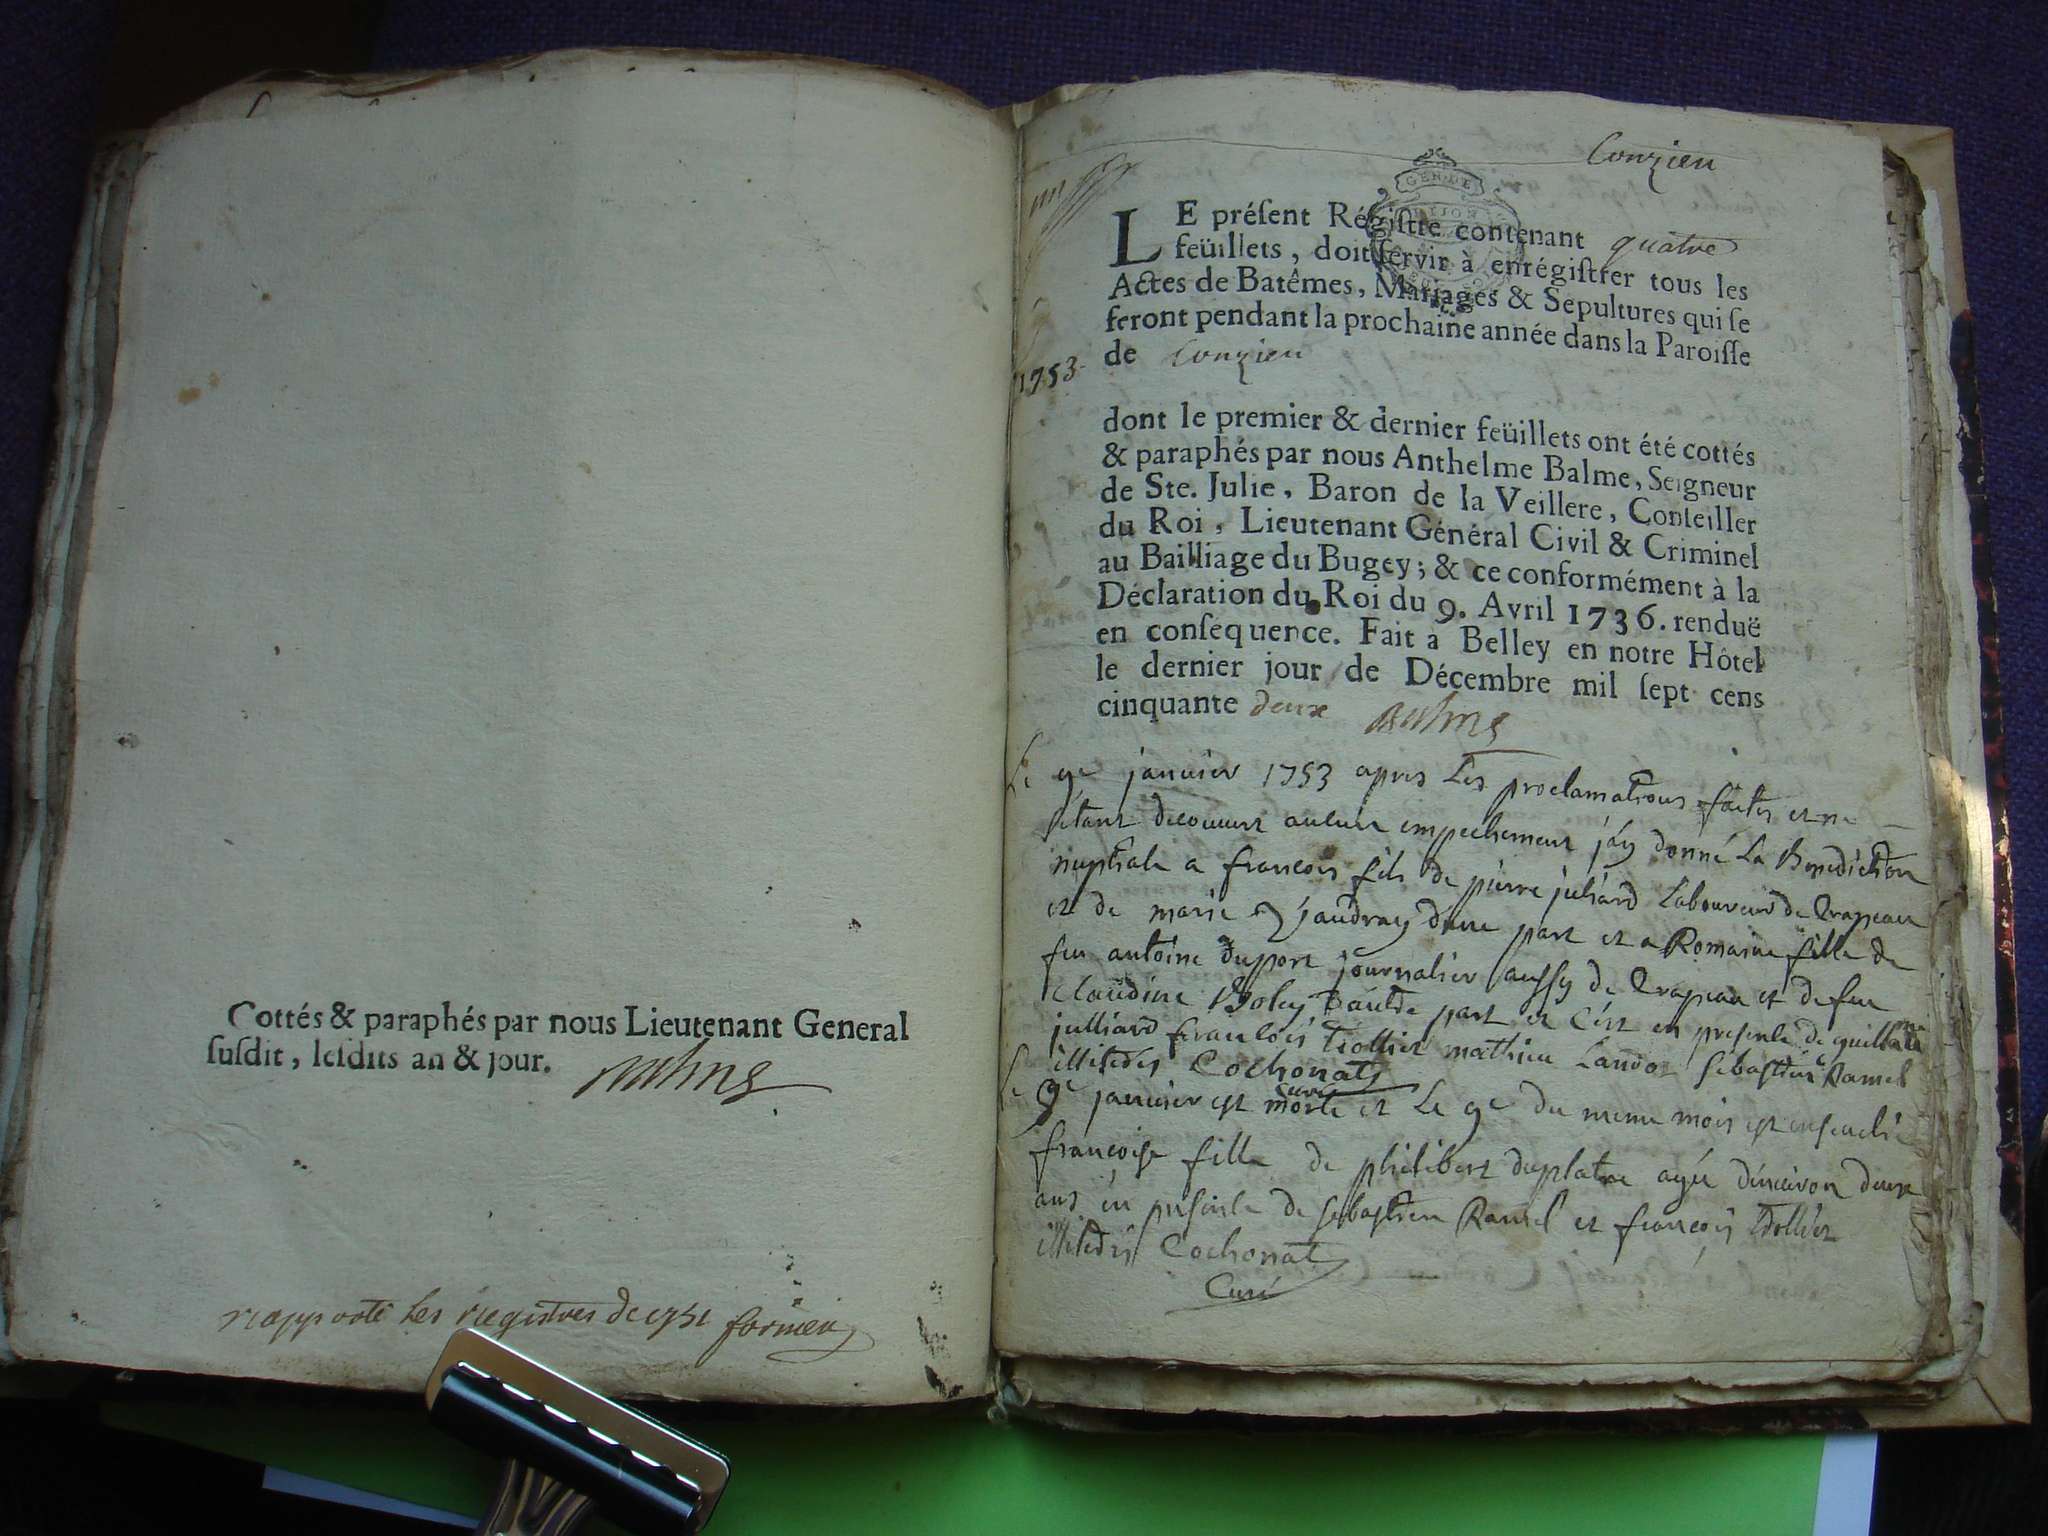 Cottés & paraphés par nous Lieutenant General
susdit, lesdits an & jour. Balme
rapporté les registres de 1751
Conzieu
GEN. DE
DIJON
LE préſent Régiſtre contenant quatre
feüillets, doit ſervir à enrégiſtrer tous les
Actes de Batêmes, Mariages & Sepultures qui ſe
feront pendant la prochaine année dans la Paroiſſe
de Conzieu
1753
dont le premier & dernier feüillets ont été cottés
& paraphés par nous Anthelme Balme, Seigneur
de Ste. Julie, Baron de la Veillere, Conſeiller
du Roi, Lieutenant Général Civil & Criminel
au Bailliage du Bugey; & ce conformément à la
Déclaration du Roi du 9. Avril 1736. renduë
en conſequence. Fait à Belley en notre Hôtel
le dernier jour de Décembre mil ſept cens
cinquante deux Balme
Le 9e janvier 1753 apres Les proclamations faites et ne
setant decouvert aucun empechement jay donné La Benediction
nuptiale a francois fils de pierre juliard Laboureur de Crapeau
et de marie jaudray dune part et a Romaine fille de
feu antoine dupont journalier aussy de Crapeau et de feu
Claudine Boley dautre part et c'est en presence de guillaume
julliard francois Trollier mathieu Landoz sebastien Ramel
illiteres Cochonat
curé
Le 9e janvier est morte et Le 9e du meme mois est ensevelie
francoise fille de philibert duplatre agée denviron deux
ans en presence de sebastien Ramel et françois Trollier
illiteres Cochonat
Curé